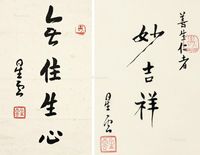 善生仁者
妙吉祥
星雲
无住生心
星雲